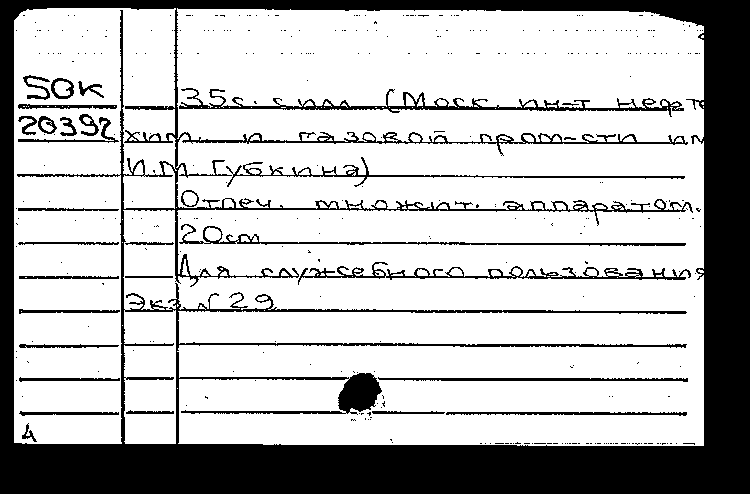 50к
35с. с илл (Моск. ин-т нефте
20392
хим. и газовой пром-сти им
И.М Губкина)
Отпеч. множит. аппаратом.
20см
Для служебного пользования
Экз. N 29